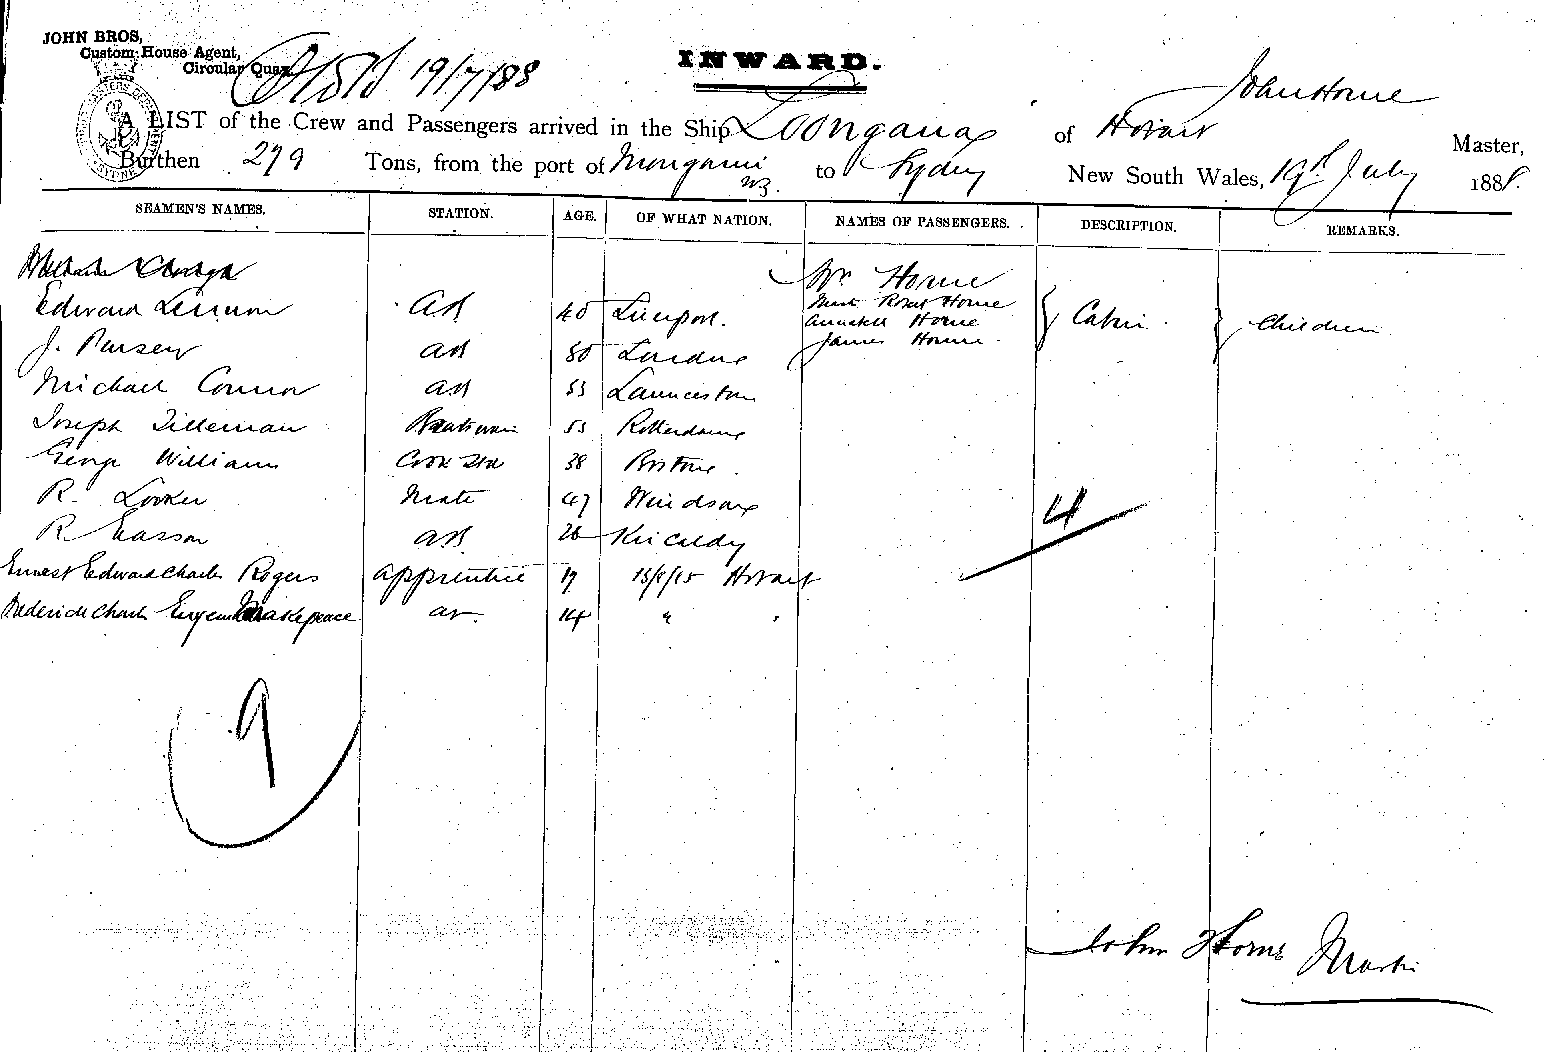 JOHN BROS,
Custom House Agent,
Circular Quay
19/7/88
INWARD.
John Horne
A LIST of the Crew and Passengers arrived in the Ship Loongana of Hobart Master,
Burthen 279 Tons, from the port of Mongonui NZ. to Sydney New South Wales, 19th July 1888.
SEAMEN'S NAMES. STATION. AGE. OF WHAT NATION. NAMES OF PASSENGERS. DESCRIPTION. REMARKS.
Mrs Horne
Edward Lennon AB 40 Liverpool. Horne Cabin Children
Horne
J. Pursey AB 50 London James Horne
Michael Connor AB 53 Launceston
Joseph Tilleman 53 Rotterdam
George Williams Cook Std 38 Boston
R. Looker Mate 47 Windsor
4
R Easson AB 26 Kircaldy
Ernest Edward Charles Rogers apprentice 19 Hobart
Frederick Charles Eugene Makepeace 14 "
9
John Horne Master